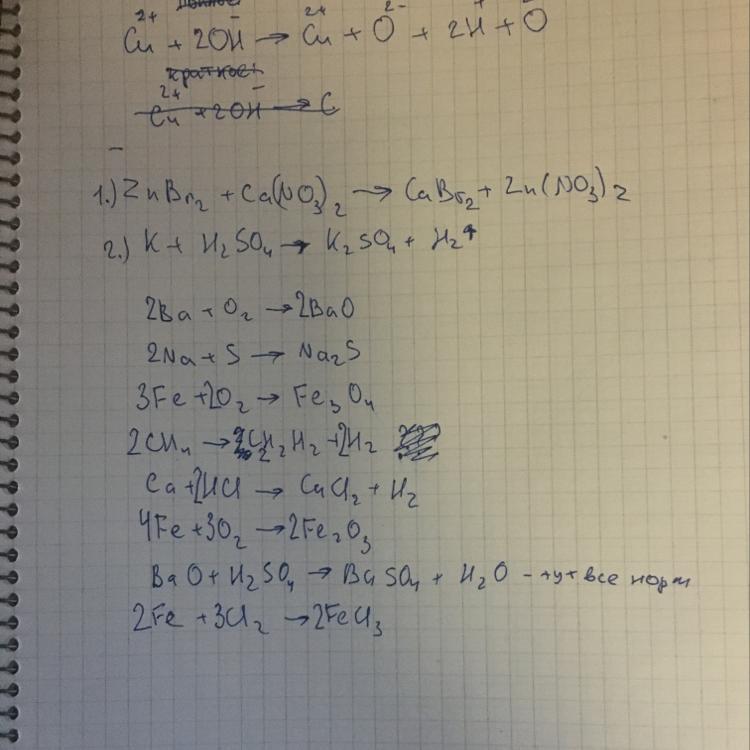 Cu²⁺ + 2OH⁻ → Cu²⁺ + O²⁻ + 2H⁺ + O⁻
Cu²⁺ + 2OH⁻ → C
1.) ZnBr₂ + Ca(NO₃)₂ → CaBr₂ + Zn(NO₃)₂
2.) K + H₂SO₄ → K₂SO₄ + H₂↑
2Ba + O₂ → 2BaO
2Na + S → Na₂S
3Fe + 2O₂ → Fe₃O₄
2CH₄ → C₂H₂ + 2H₂
Ca + 2HCl → CaCl₂ + H₂
4Fe + 3O₂ → 2Fe₂O₃
BaO + H₂SO₄ → BaSO₄ + H₂O - тут все норм
2Fe + 3Cl₂ → 2FeCl₃